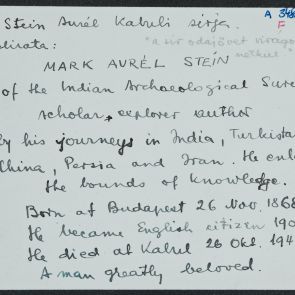 Stein Aurél Kabuli sírja.
A 346
F
"a sír odajövet virágo
nélkül"
MARK AURÉL STEIN
of the Indian Archaeological Surv
scholar, explorer author
y his journeys in India, Turkista
China, Persia and Iran. He enl
the bounds of knowledge.
Born at Budapest 26 Nov. 1868
He became English citizen 190
He died at Kabul 26 Okt. 194
A man greatly beloved.